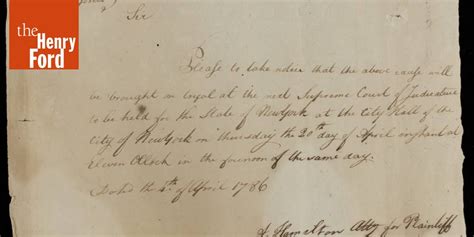 the
Henry
Ford
Sir
Please to take notice that the above cause will
be brought on to
at the next Supreme Court of Judicature
to be held for the State of New York at the City Hall of the
City of New York on thursday the 20th day of April
at
Eleven oClock in the forenoon of the same day.
Dated the 4th of April 1786
A Hamilton Atty for Plaintiff